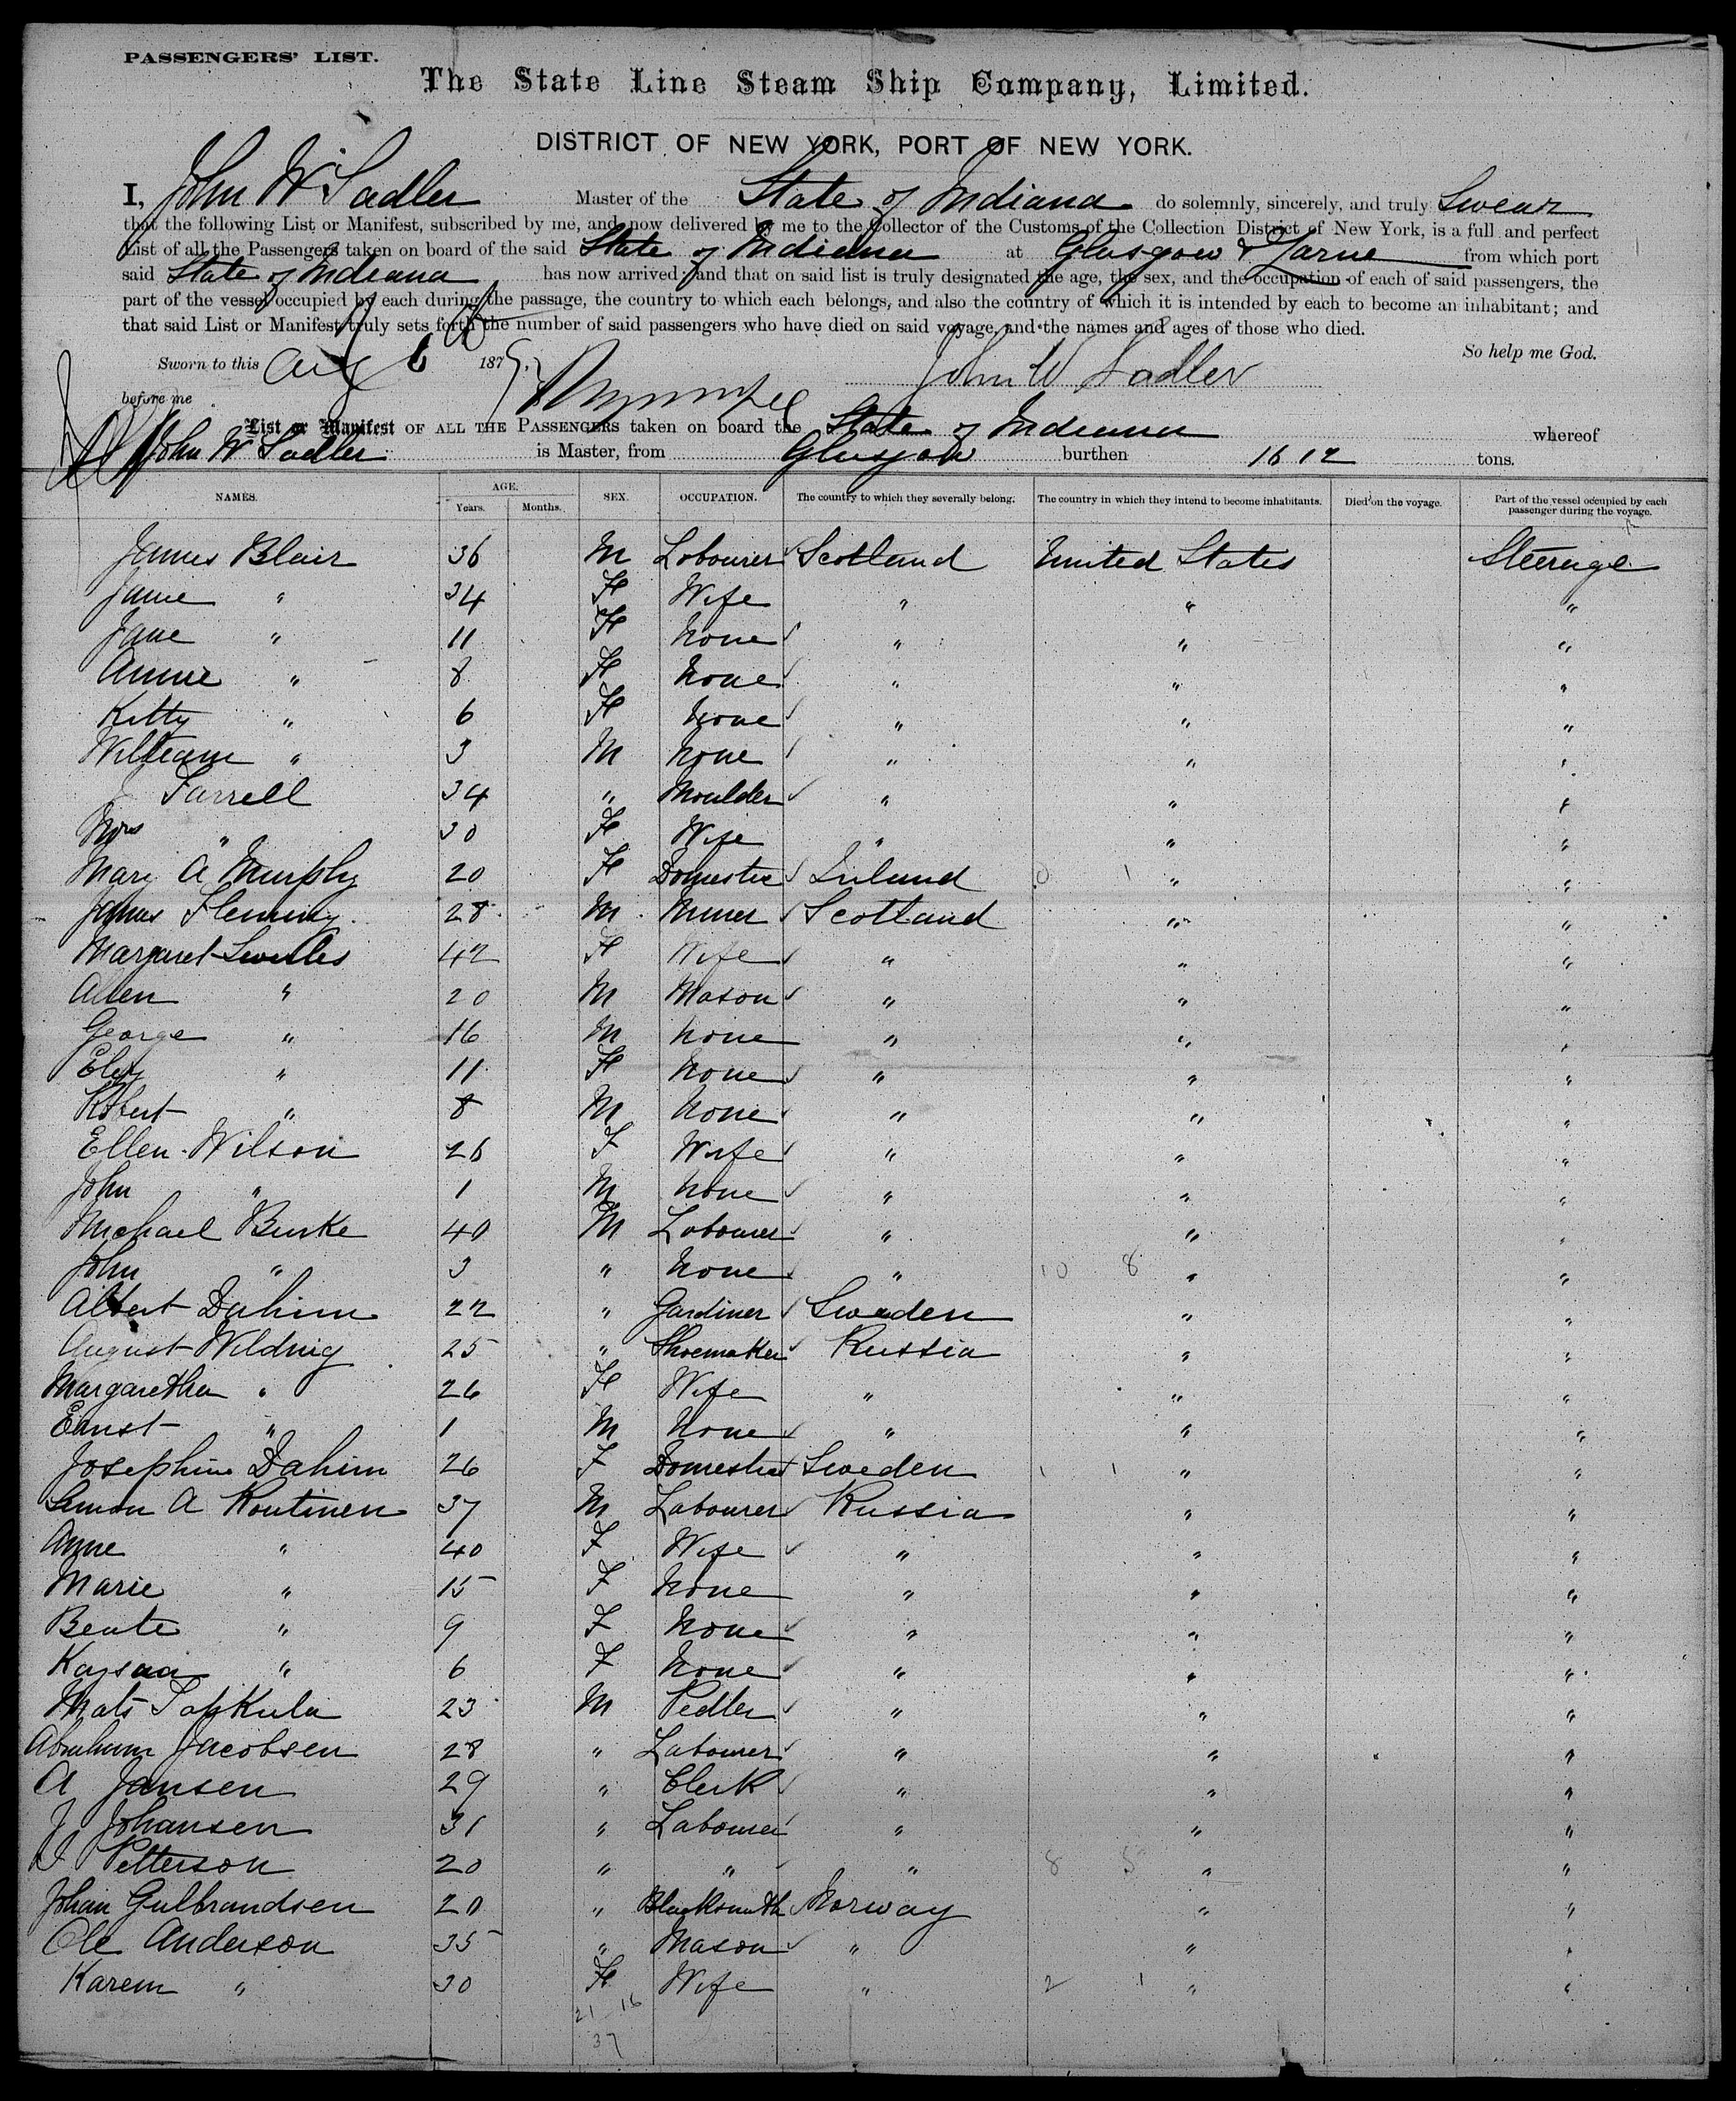 PASSENGERS' LIST.
The State Line Steam Ship Company, Limited.
DISTRICT OF NEW YORK, PORT OF NEW YORK.
I, John W Sadler Master of the State of Indiana do solemnly, sincerely, and truly Swear
that the following List or Manifest, subscribed by me, and now delivered by me to the Collector of the Customs of the Collection District of New York, is a full and perfect
List of all the Passengers taken on board of the said State of Indiana at Glasgow & Larne from which port
said State of Indiana has now arrived; and that on said list is truly designated the age, the sex, and the occupation of each of said passengers, the
part of the vessel occupied by each during the passage, the country to which each belongs, and also the country of which it is intended by each to become an inhabitant; and
that said List or Manifest truly sets forth the number of said passengers who have died on said voyage, and the names and ages of those who died.
So help me God.
Sworn to this Aug 6 187
John W Sadler
before me
List or Manifest OF ALL THE PASSENGERS taken on board the State of Indiana whereof
John W Sadler is Master, from Glasgow burthen 1612 tons.
NAMES. AGE. Years. Months. SEX. OCCUPATION. The country to which they severally belong. The country in which they intend to become inhabitants. Died on the voyage. Part of the vessel occupied by each passenger during the voyage.
James Blair 36 M Labourer Scotland United States Steerage
Jane " 34 F Wife " " "
Jane " 11 F None " " "
Annie " 8 F None " " "
Kitty " 6 F None " " "
William " 3 M None " " "
J Farrell 34 " Moulder " " "
Mrs " 30 F Wife " " "
Mary A Murphy 20 F Domestic Ireland 0 1 " "
James Fleming 28 M Miner Scotland " "
Margaret 42 F Wife " " "
Allen " 20 M Mason " " "
George " 16 M None " " "
" 11 F None " " "
Robert " 8 M None " " "
Ellen Wilson 26 F Wife " " "
John " 1 M None " " "
Michael Burke 40 M Labourer " " "
John " 3 " None " 10 8 " "
Albert Dahim 22 " Gardiner Sweden " "
August Wildnig 25 " Shoemaker Russia " "
Margaretha " 26 F Wife " " "
Ernst " 1 M None " " "
Josephine Dahim 26 F Domestic Sweden 1 1 " "
Simon A Routinen 37 M Labourer Russia " "
Anne " 40 F Wife " " "
Marie " 15 F None " " "
Beate " 9 F None " " "
Kaysaa " 6 F None " " "
Mats 23 M Pedler " " "
Abraham Jacobsen 28 " Labourer " " "
A Jansen 29 " Clerk " " "
J Johansen 31 " Labourer " " "
Petterson 20 " " " 8 5 " "
Johan Gulbrandsen 20 " Blacksmith Norway " "
Ole Anderson 35 " Mason " " "
Karem " 30 F Wife " 2 1 " "
21 16
37